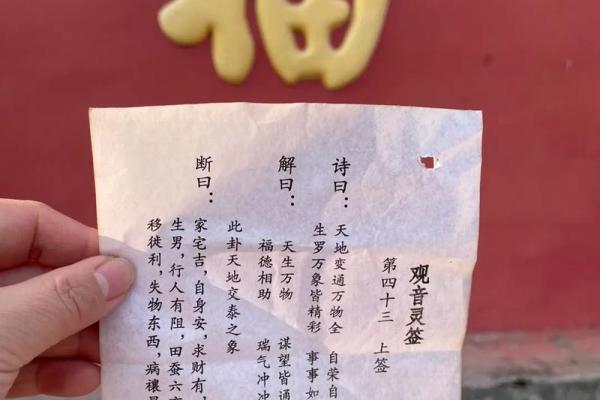 观音灵签
第四十三 上签
诗曰：天地变通万物全 自荣自
生罗万象皆精彩 事事如
解曰：天生万物 谋望皆通
福德相助 瑞气冲冲
此卦天地交泰之象
断曰：家宅吉，自身安，求财有，
生男，行人有阻，田蚕六
移徙利，失物东西，病禳